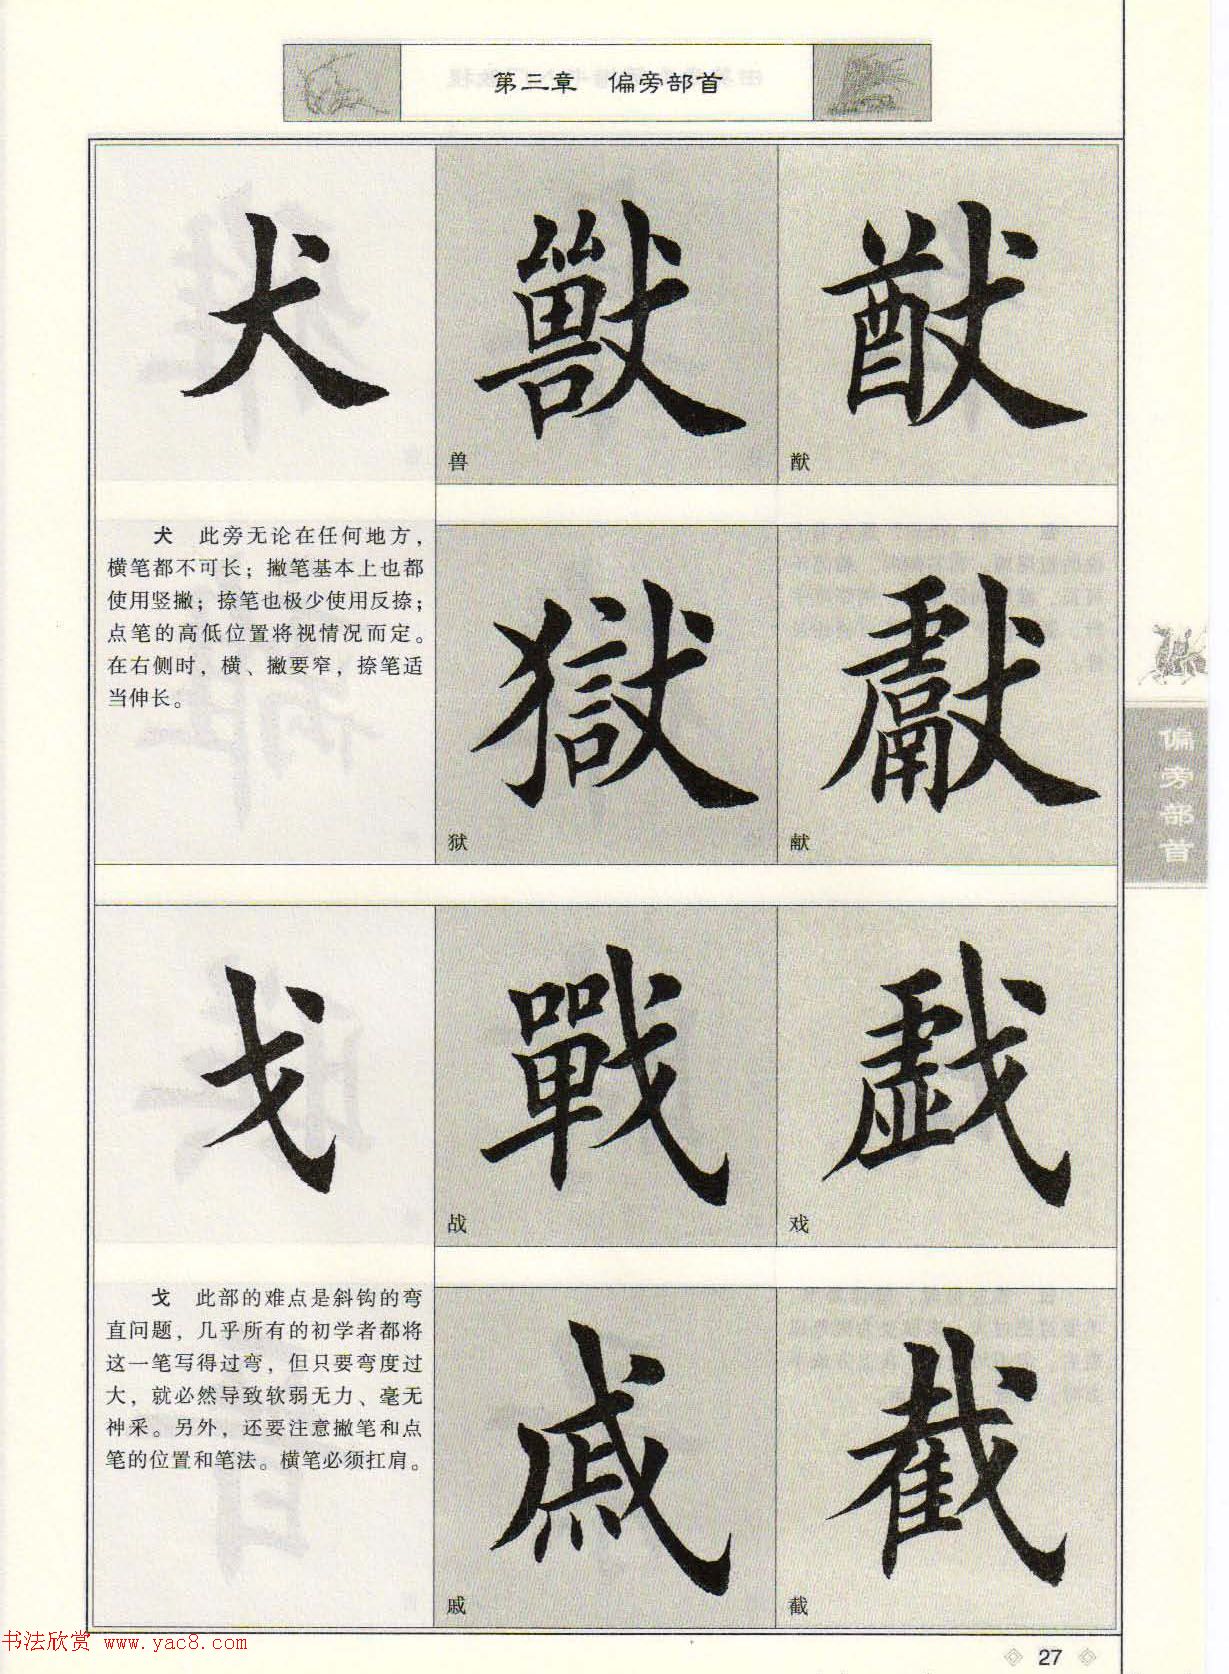 第三章 偏旁部首
犬
獸
猷
兽
猷
犬 此旁无论在任何地方，
横笔都不可长；撇笔基本上也都
使用竖撇；捺笔也极少使用反捺；
点笔的高低位置将视情况而定。
在右侧时，横、撇要窄，捺笔适
当伸长。
獄
獻
狱
献
偏旁部首
戈
戰
戲
战
戏
戈 此部的难点是斜钩的弯
直问题，几乎所有的初学者都将
这一笔写得过弯，但只要弯度过
大，就必然导致软弱无力、毫无
神采。另外，还要注意撇笔和点
笔的位置和笔法。横笔必须扛肩。
戚
截
戚
截
书法欣赏 www.yac8.com
27